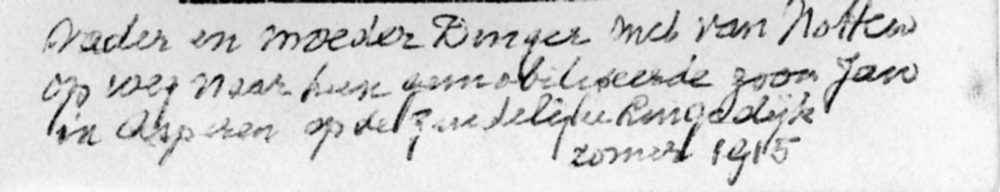 Vader en moeder Dinger met van Notten
op weg naar hun gemobiliseerde zoon Jan
in Asperen op de Zuidelijke Lingedijk
zomer 1915